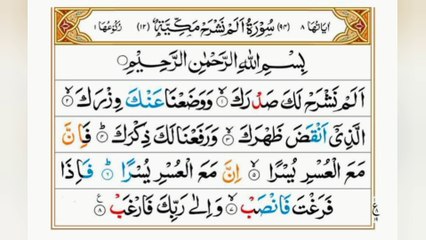 اٰیَاتُهَا ۸ (۹۴) سُوْرَةُ اَلَمْ نَشْرَحْ مَكِّيَّةٌ (۱۲) رُكُوْعُهَا ۱
بِسْمِ اللهِ الرَّحْمٰنِ الرَّحِيْمِ
اَلَمْ نَشْرَحْ لَكَ صَدْرَكَ ۙ۱ وَوَضَعْنَا عَنْكَ وِزْرَكَ ۙ۲
الَّذِيْۤ اَنْقَضَ ظَهْرَكَ ۙ۳ وَرَفَعْنَا لَكَ ذِكْرَكَ ؕ۴ فَاِنَّ
مَعَ الْعُسْرِ يُسْرًا ۙ۵ اِنَّ مَعَ الْعُسْرِ يُسْرًا ؕ۶ فَاِذَا
فَرَغْتَ فَانْصَبْ ۙ۷ وَاِلٰى رَبِّكَ فَارْغَبْ ۠۸